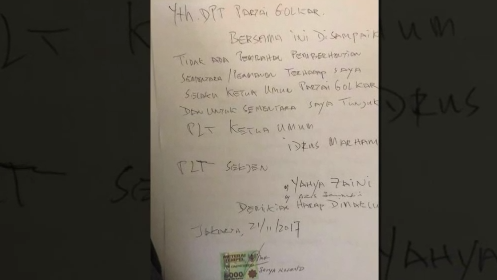 Yth. DPP Partai GOLKAR.
BERSAMA ini DiSAMPAIK
TIDAK ADA PEMBAHASAN PEMBERHENTIAN
SEMENTARA / PERMANEN TERHADAP SAYA
SELAKU KETUA UMUM PARTAI GOLKAR
DAN UNTUK SEMENTARA SAYA TUNJUK
PLT KETUA UMUM
iDRUS MARHAM
PLT SEKJEN
YAHYA ZAINI
DEMIKIAN HARAP DIMAKLU
JAKARTA, 21/11/2017
6000
Setya Novanto